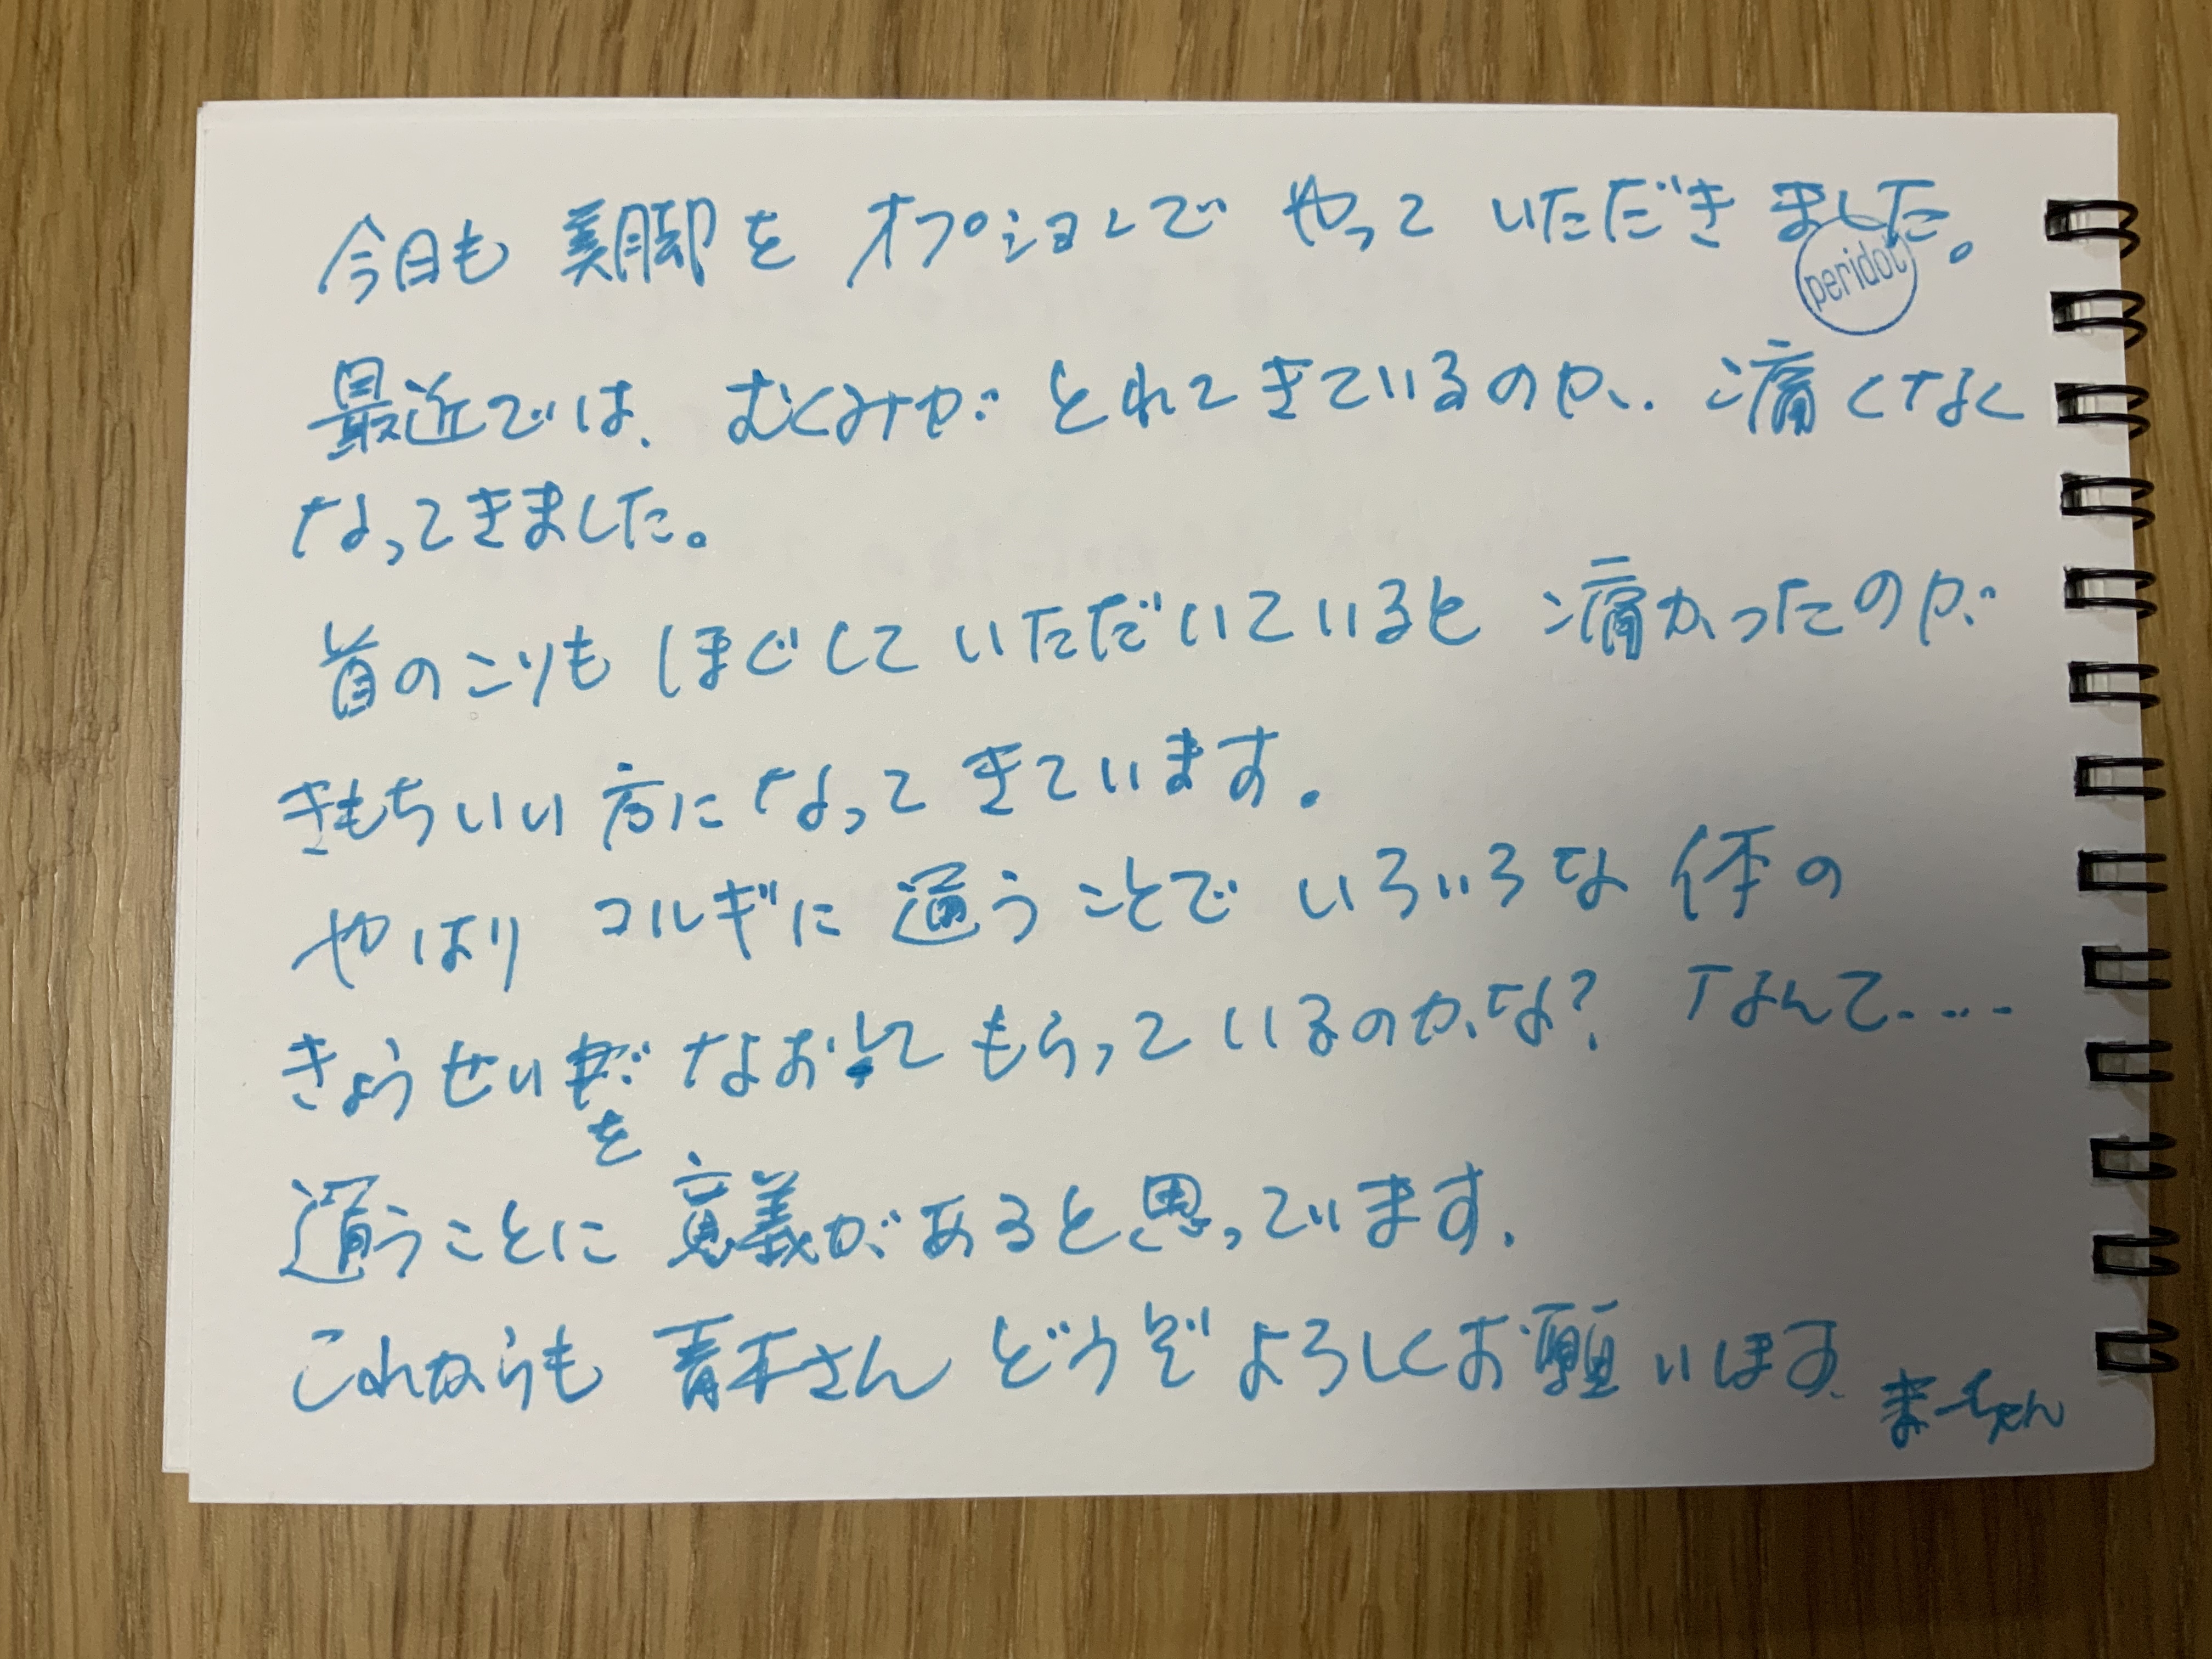 今日も 美脚を オプションで やって いただきました。
peridot
最近では、むくみが とれてきているのか、痛くなく
なってきました。
首のこりも ほぐして いただいていると 痛かったのが
きもちいい方になって きています。
やはり コルギに 通うことで いろいろな 体の
きょうせい なおして もらっているのかな? なんて....
を
通うことに 意義があると思っています。
これからも 青木さん どうぞ よろしくお願いします
まーちゃん